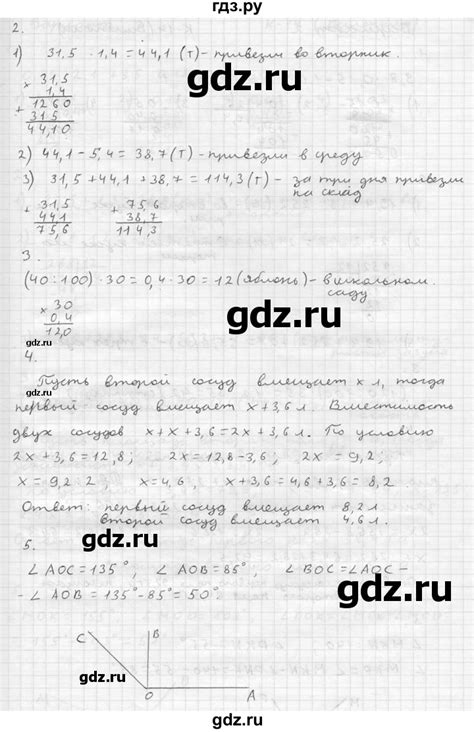 гдз.ру
2.
1) 31,5 · 1,4 = 44,1 (т) - привезли во вторник.
× 31,5
1,4
+ 1260
315
44,10
2) 44,1 - 5,4 = 38,7 (т) - привезли в среду
3) 31,5 + 44,1 + 38,7 = 114,3 (т) - за три дня привезли
на склад
+ 31,5
44,1
75,6
+ 75,6
38,7
114,3
3.
(40 : 100) · 30 = 0,4 · 30 = 12 (яблонь) - в школьном
саду
× 30
0,4
12,0
4.
Пусть второй сосуд вмещает x л, тогда
первый сосуд вмещает x + 3,6 л. Вместимость
двух сосудов x + x + 3,6 = 2x + 3,6 л. По условию
2x + 3,6 = 12,8; 2x = 12,8 - 3,6; 2x = 9,2;
x = 9,2 : 2 x = 4,6, x + 3,6 = 4,6 + 3,6 = 8,2
Ответ: первый сосуд вмещает 8,2 л.
второй сосуд вмещает 4,6 л.
5.
∠AOC = 135°, ∠AOB = 85°, ∠BOC = ∠AOC -
- ∠AOB = 135° - 85° = 50°.
C B
O A
gdz.ru
gdz.ru
gdz.ru
gdz.ru
gdz.ru
gdz.ru
gdz.ru